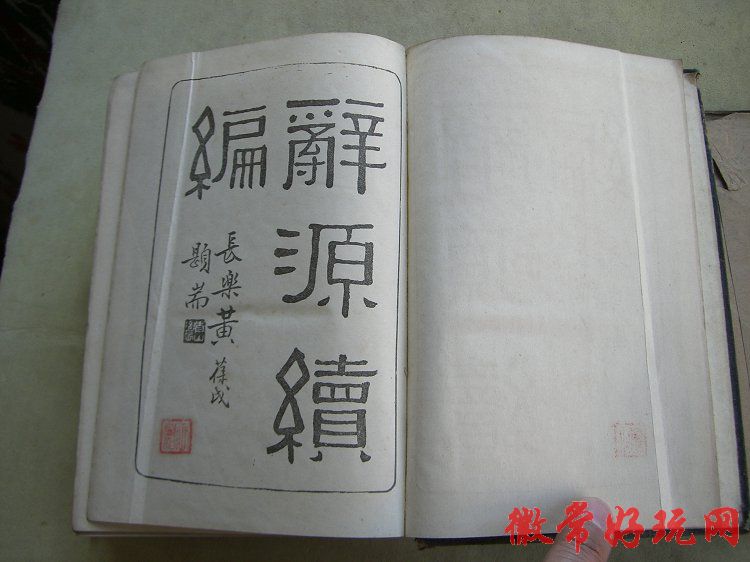 辭源續
編
長樂黃葆戉
題耑
徽常好玩网